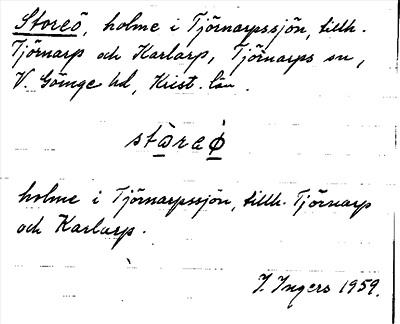 Storeö, holme i Tjörnarpssjön, tillh.
Tjörnarp och Karlarp, Tjörnarps sn,
V. Göinge hd, Krist. län.
stòreǿ
holme i Tjörnarpssjön, tillh. Tjörnarp
och Karlarp.
I. Ingers 1959.